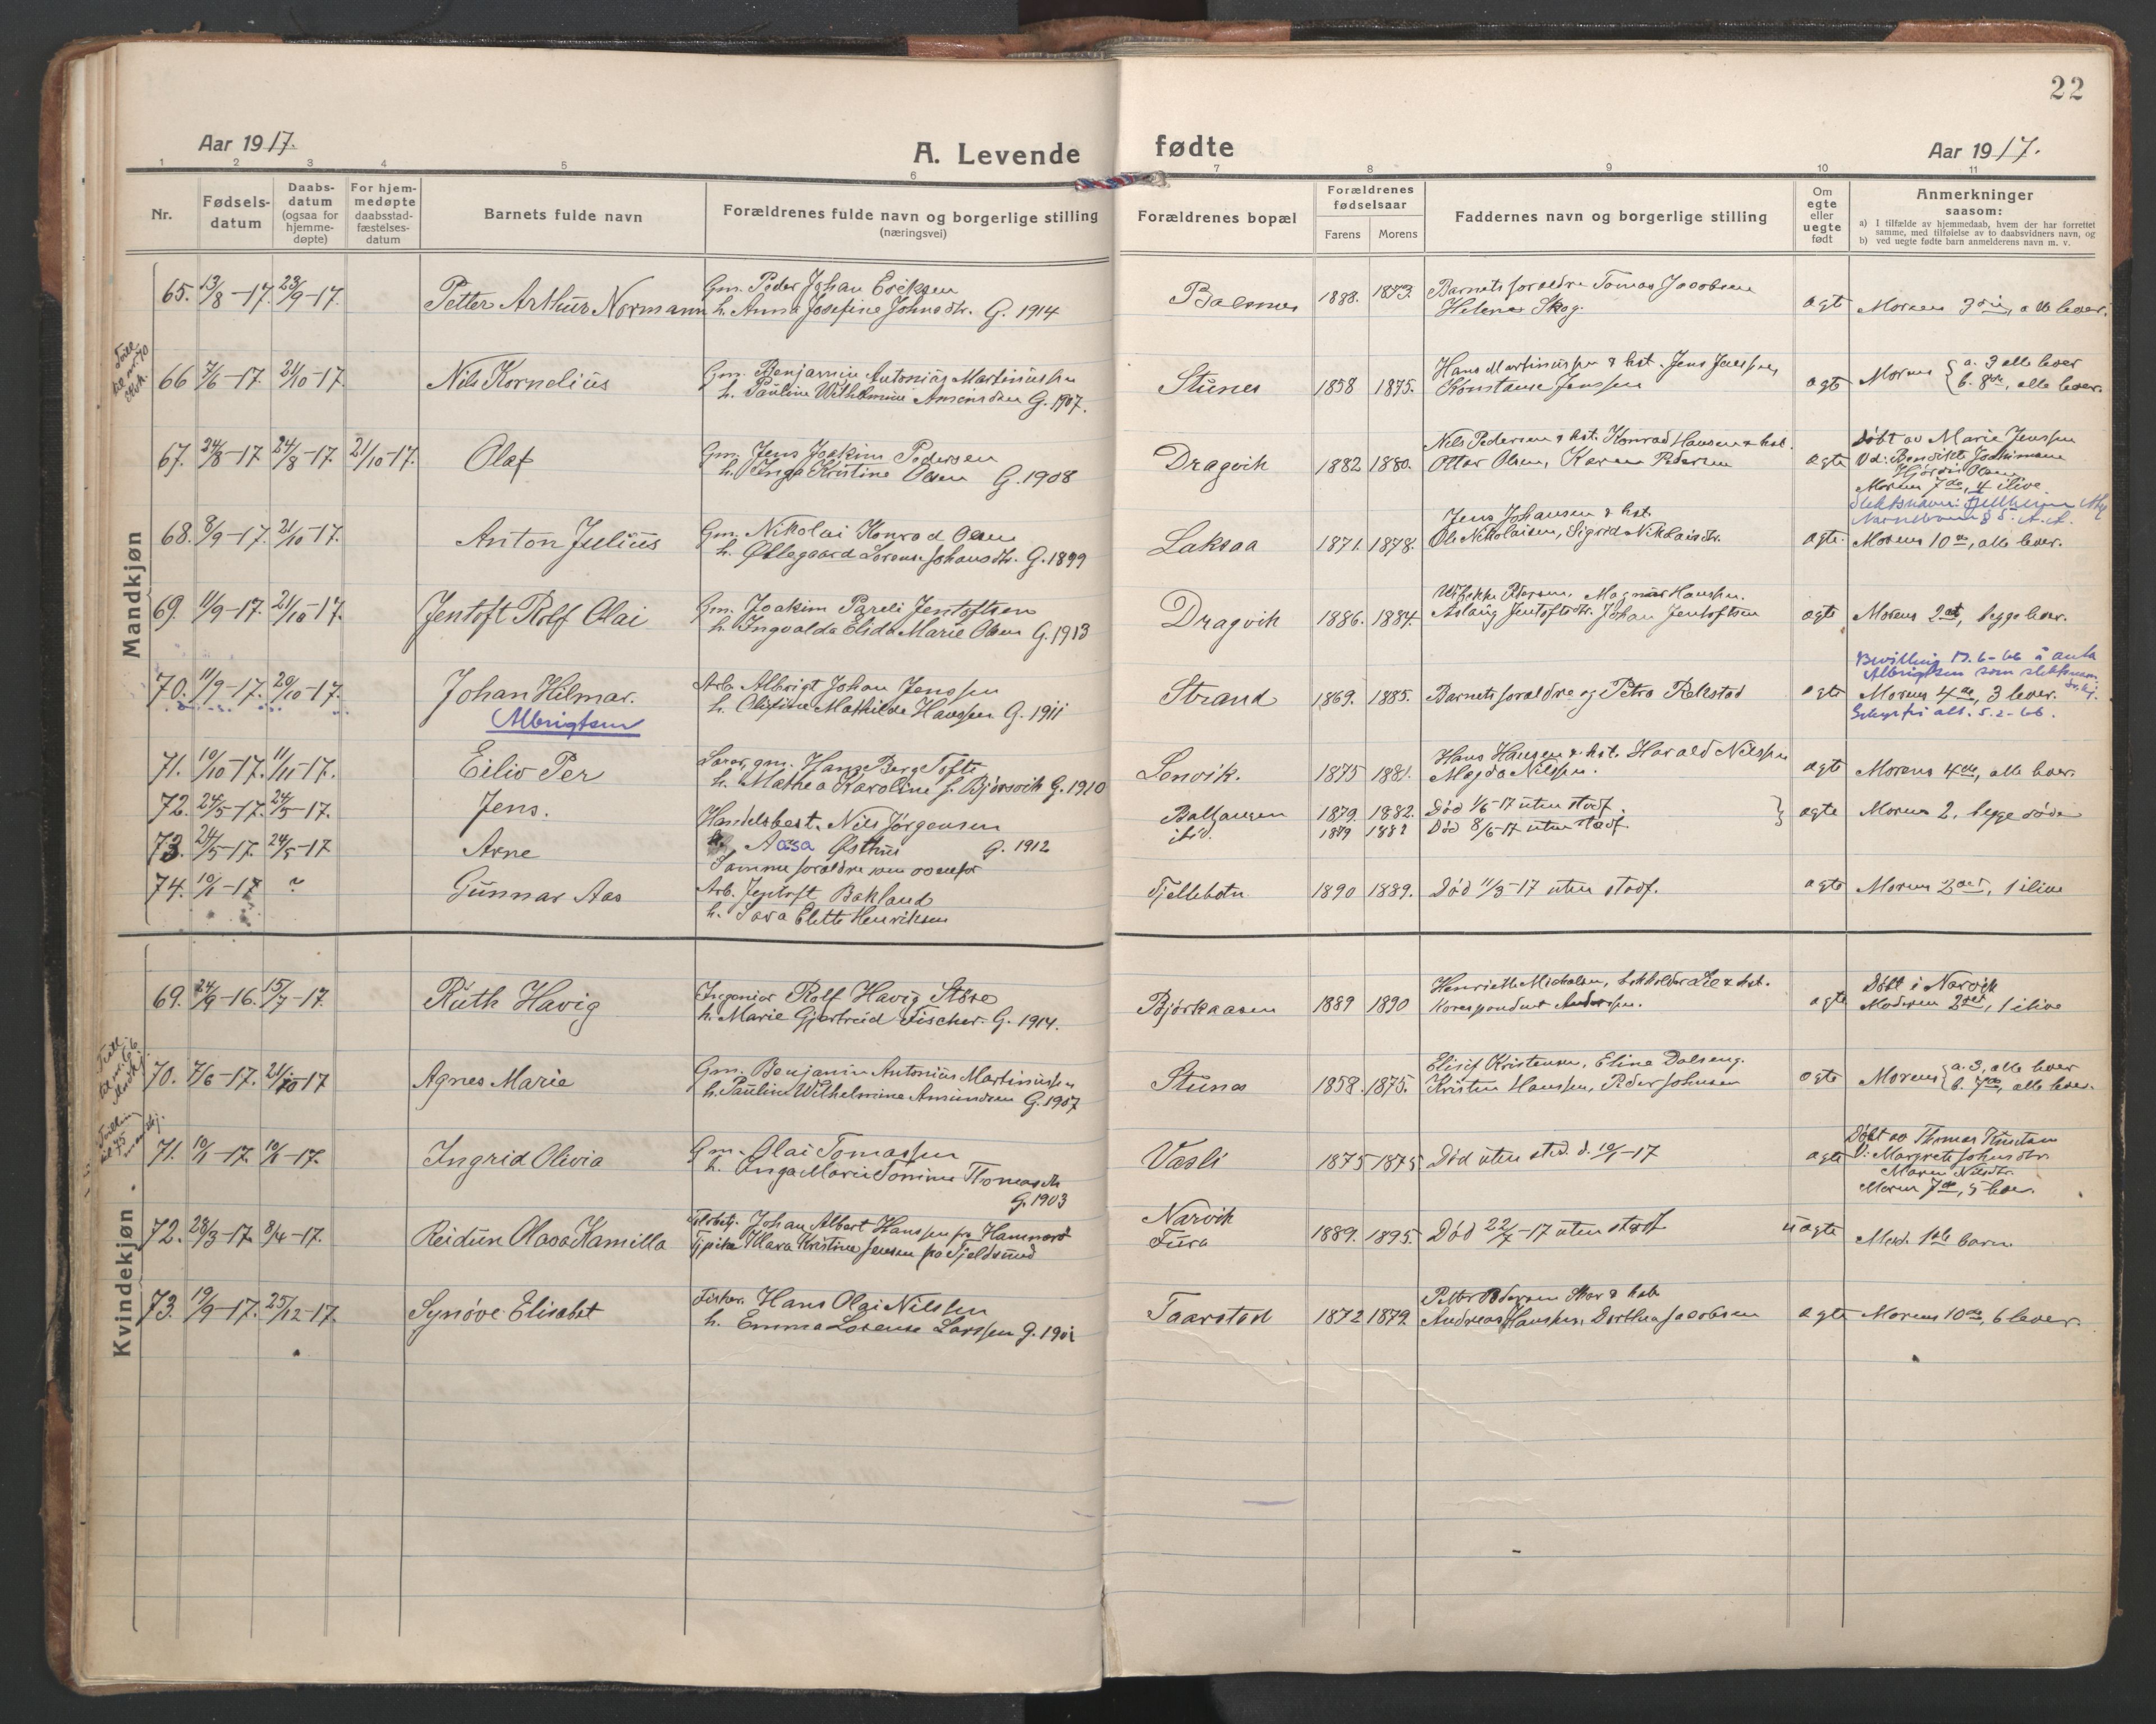 22
Aar 1917.
A. Levende fødte
Aar 1917.
1 2 3 4 5 6 7 8 9 10 11
Nr.
Fødsels-
datum
Daabs-
datum
(ogsaa for
hjemme-
døpte)
For hjem-
medøpte
daabsstad-
fæstelses-
datum
Barnets fulde navn
Forældrenes fulde navn og borgerlige stilling
(næringsvei)
Forældrenes bopæl
Forældrenes
fødselsaar
Farens Morens
Faddernes navn og borgerlige stilling
Om
egte
eller
uegte
født
Anmerkninger
saasom:
a) I tilfælde av hjemmedaab, hvem der har forrettet
samme, med tilføielse av to daabsvidners navn, og
b) ved uegte fødte barn anmelderens navn m. v.
Mandkjøn
65. 13/8-17. 23/9-17. Petter Arthur Normann
Gm. Peder Johan Eriksen
h. Anna Josefine Johnsdtr. G. 1914
Balsnes 1888. 1873.
Barnets foreldre Tomas Jacobsen
Helene Skog.
egte Morens 3die, alle lever.
Tvill.
til nr. 70
66 7/6-17. 21/10-17. Nils Kornelius
Gm. Benjamin Antonius Martinussen
h. Pauline Wilhelmine Amundsen G. 1907.
Stunes 1858 1875.
Hans Martinussen & hst. Jens Jenssen,
Konstanse Jenssen
egte Morens a. 3 alle lever
b. 8de, alle lever.
67. 24/8-17 24/8-17. 21/10-17. Olaf
Gm. Jens Joakim Pedersen
h. Inga Kristine Olsen G. 1908
Dragvik 1882 1880.
Nils Pedersen & hst. Konrad Hansen & hst.
Ottar Olsen, Karen Pedersen
egte
Døbt av Marie Jenssen
Vd: Benedikte Joakimsen
Hjørdis Olsen
Morens 7de, 4 ilive
68. 8/9-17. 21/10-17. Anton Julius
Gm. Nikolai Konrad Olsen
h. Øllegaard Lorense Johansdtr. G. 1899
Laksaa 1871. 1878.
Jens Johansen & hst.
Ole Nikolaisen, Sigrid Nikolaisdtr.
egte. Morens 10de, alle lever.
69. 11/9-17. 21/10-17. Jentoft Rolf Olai
Gm. Joakim Pareli Jentoftsen
h. Ingvalda Elida Marie Olsen G. 1913
Dragvik 1886. 1884.
Wibekke Pedersen, Magnus Hanssen.
Aslaug Jentoftsdtr. Johan Jentoftsen
egte Morens 2det, begge lever.
70. 11/9-17. 20/10-17. Johan Hilmar.
Albrigtsen
Arb. Albrigt Johan Jenssen
h. Olufine Mathilde Hanssen G. 1911
Strand 1869. 1885.
Barnets foreldre og Petra Rekstad
egte
Bevilling 17.6-66 å anta
Albrigtsen som slektsnavn
Morens 4de, 3 lever.
71. 10/10-17. 11/11-17. Eiliv Per
Lærer, gm. Hans Berg Tofte
h. Mathea Karoline f. Bjørsvik G. 1910
Lenvik. 1875 1881.
Hans Hansen & hst. Harald Nilssen
Magda Nilssen.
egte Morens 4de, alle lever.
72. 24/5-17. 24/5-17. Jens.
Handelsbest. Nils Jørgensen
Ballangen 1879. 1882. Død 1/6-17 uten stadf.
egte Morens 2, begge døde
73. 24/5-17. 24/5-17 Arne
h. Aasa Østhus G. 1912
Samme foreldre som ovenfor
ibid. 1879 1882 Død 8/6-17 uten stadf.
74. 10/1-17 ? Gunnar Aas
Arb. Jentoft Bakland
h. Sara Elette Henriksen
Fjellebotn 1890 1889. Død 11/3-17 uten stadf.
egte Morens 2det, 1 ilive
Kvindekjøn
69. 24/9-16. 15/7-17. Ruth Havig
Ingeniør Rolf Havig Støre
h. Marie Gjertreid Fischer. G. 1914.
Bjørkaasen 1889 1890
Henriette Michelsen, bokholder Lie & hst.
Korespondent Anderssen.
egte
Døbt i Narvik
Moderen 2det, 1 ilive
Tvill.
til nr. 66
70. 7/6-17. 21/10-17 Agnes Marie
Gm. Benjamin Antonius Martinussen
h. Pauline Wilhelmine Amundsen G. 1907
Stunes 1858. 1875.
Elisif Kristensen, Eline Dalseng.
Kristen Hanssen, Peder Johnsen
egte Morens a. 3, alle lever
b. 7de, alle lever.
Tvilling
til 75
71. 10/1-17. 10/1-17. Ingrid Olivia
Gm. Olai Tomassen
h. Inga Marie Tomine Thomasdtr.
G. 1903
Vasli 1875 1875 Død uten stad. d. 10/1-17
egte
Døbt av Thomas Knutsen
V: Margrete Johnsdtr.
Maren Nilsdtr.
Morens 7de, 5 lever.
72. 28/3-17. 8/4-17. Reidun Olasa Kamilla
Johan Albert Hanssen fra Hammerø
Klara Kristine Jensen fra Tjeldsund
Narvik
Fura
1889. 1895. Død 22/7-17 uten stadf.
uegte Mod. 1ste barn.
73. 19/9-17. 25/12-17. Synøve Elisabet
Fisker. Hans Olai Nilssen
h. Emma Lorense Larssen G. 1901
Taarstad 1872 1879
Petter Pedersen Skar & hst.
Andreas Hanssen, Dorthea Jacobsen
egte Morens 10de, 6 lever.